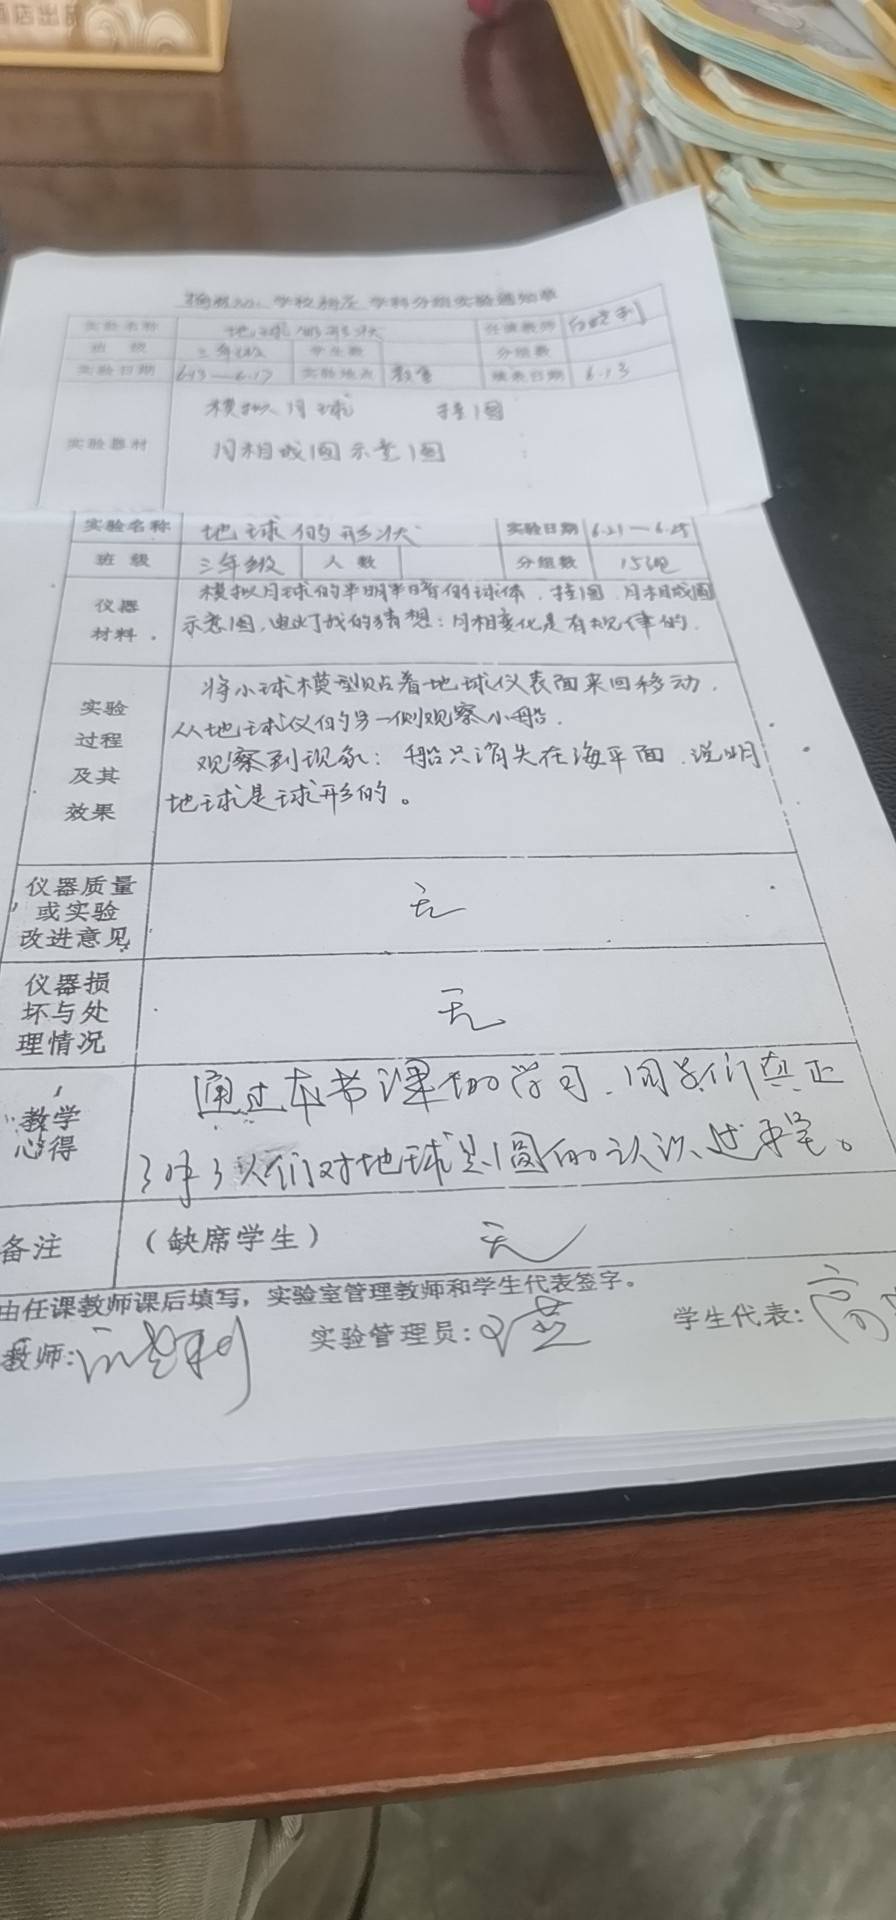 酒店出品
学校 学科分组实验通知单
实验名称 地球的形状 任课教师
班 级 三年级 学生数 分组数
实验日期 6.13—6.17 实验地点 教室 填表日期 6.13
实验器材 模拟月球 挂图
月相成因示意图
实验名称 地球的形状 实验日期 6.21—6.25
班 级 三年级 人 数 分组数 15组
仪器材料 模拟月球的半明半暗的球体、挂图、月相成因
示意图、电灯我的猜想：月相变化是有规律的.
实验过程及其效果 将小球模型贴着地球仪表面来回移动.
从地球仪的另一侧观察小船.
观察到现象：船只消失在海平面.说明
地球是球形的。
仪器质量或实验改进意见 无
仪器损坏与处理情况 无
教学心得 通过本节课的学习、同学们真正
了解了人们对地球是圆的认识过程。
备注 （缺席学生） 无
由任课教师课后填写，实验室管理教师和学生代表签字。
教师： 实验管理员： 学生代表：高